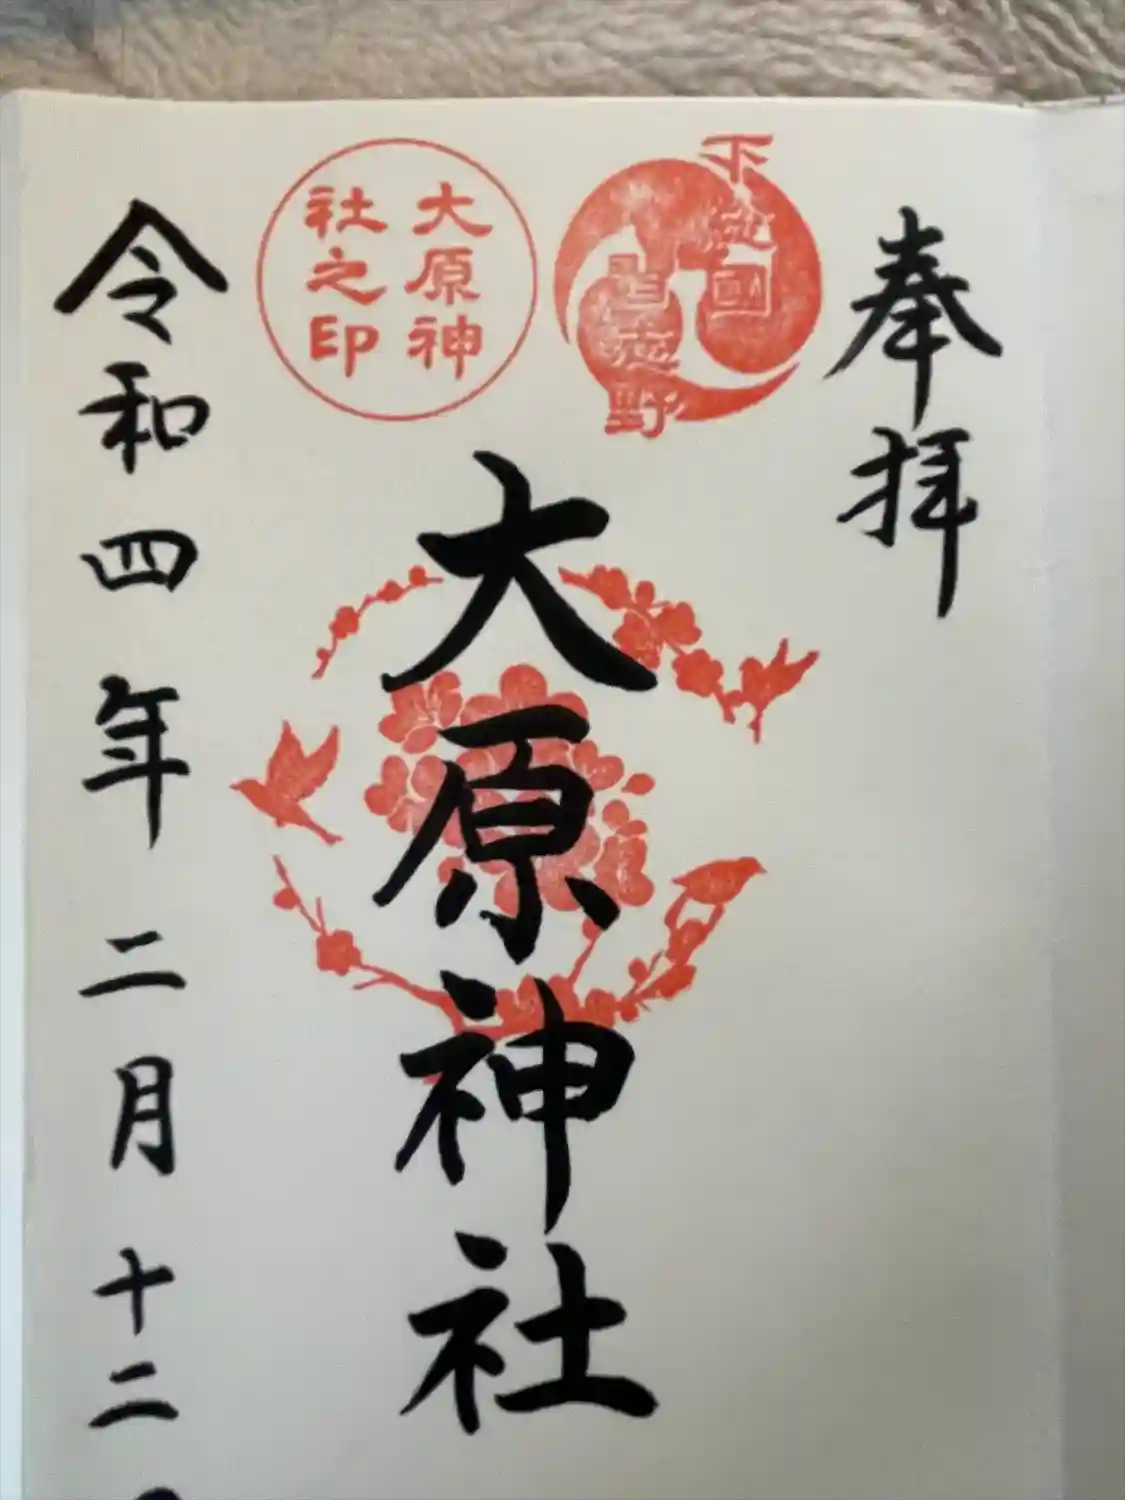 奉拝
下總國
習志野
大原神
社之印
大原神社
令和四年二月十二